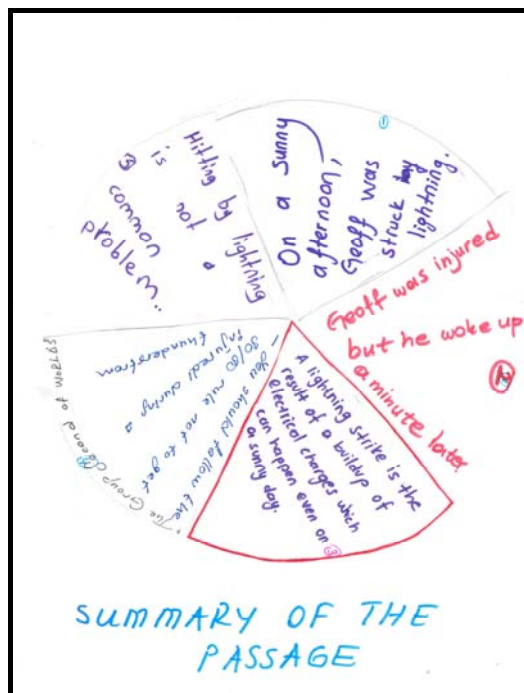 ①
On a sunny
afternoon,
Geoff was
struck by
lightning.
Geoff was injured
but he woke up
a minute later
②
A lightning strike is the
result of a buildup of
electrical charges which
can happen even on ③
a sunny day.
You should follow the
30/30 rule not to get
injured during a
thunderstrom
④
The Group
of WORLDS
Hitting by lightning
is not a
⑤ common
problem..
SUMMARY OF THE
PASSAGE